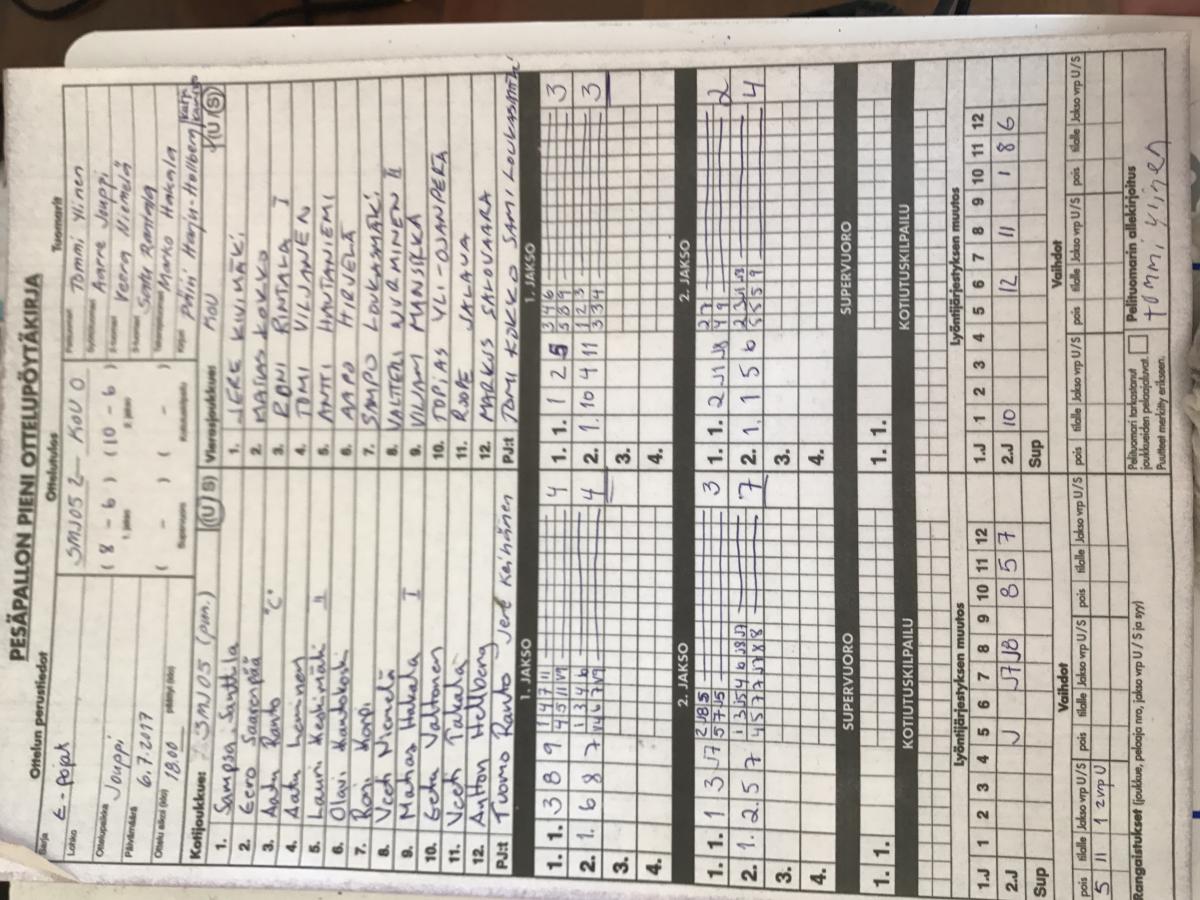 PESÄPALLON PIENI OTTELUPÖYTÄKIRJA
Ottelun perustiedot
Ottelutulos
Tuomarit
Sarja E-pojat
Lohko
Ottelupaikka Jouppi
Päivämäärä 6.7.2017
Ottelu alkoi (klo) 18.00 päättyi (klo)
SMJ05 2 - KOU 0
( 8 - 6 ) ( 10 - 6 )
1. jakso 2. jakso
( - ) ( - )
Supervuoro Kotiutuskilpailu
Pelituomari Tommi Ylinen
Syöttötuomari Aarre Jouppi
2-tuomari Veera Niemelä
3-tuomari Santtu Rantala
Takarajatuomari Marko Hakala
Kirjuri Päivi Harju-Hellberg
Kotijoukkue: SMJ05 (pun.) (U S)
1. Sampsa Santtila
2. Eero Saarenpää
3. Aatu Ranto "C"
4. Aatu Leminen
5. Lauri Koskimäki II
6. Olavi Hautakoski
7. Roni Korpi
8. Veeti Niemelä
9. Matias Hakala I
10. Eetu Valtonen
11. Veeti Takala
12. Anton Hellberg
PJ:t Tuomo Ranto Jere Keihänen
Vierasjoukkue: KOU (U S)
1. JERE KIVIMÄKI
2. MATIAS KOKKO
3. RONI RINTALA I
4. TOMI VILJANEN
5. ANTTI HAUTANIEMI
6. AAPO HIRVELÄ
7. SAMPO LOUKASMÄKI
8. VALTTERI NURMINEN II
9. VILJAMI MANSIKKA
10. TOPIAS YL-OJANPERÄ
11. ROOPE SALAVA
12. MARKUS SALOVAARA
PJ:t TOMI KOKKO SAMI LOUKASMÄKI
1. JAKSO
1. 1. 3 8 9 4
2. 1. 6 8 7 4
3.
4.
1. JAKSO
1. 1. 1 2 5 3
2. 1. 10 4 11 3
3.
4.
2. JAKSO
1. 1. 1 3 J7 3
2. 1. 2. 5 7 7
3.
4.
2. JAKSO
1. 1. 2 J1 J8 2
2. 1. 1 5 6 4
3.
4.
SUPERVUORO
1. 1.
SUPERVUORO
1. 1.
KOTIUTUSKILPAILU
KOTIUTUSKILPAILU
Lyöntijärjestyksen muutos
1.J 1 2 3 4 5 6 7 8 9 10 11 12
2.J J J7 JB 8 5 7
Sup
Lyöntijärjestyksen muutos
1.J 1 2 3 4 5 6 7 8 9 10 11 12
2.J 10 12 11 1 8 6
Sup
Vaihdot
pois tilalle Jakso vrp U/S pois tilalle Jakso vrp U/S pois tilalle Jakso vrp U/S
5 11 1 2vrp U
Vaihdot
pois tilalle Jakso vrp U/S pois tilalle Jakso vrp U/S pois tilalle Jakso vrp U/S
Rangaistukset (joukkue, pelaaja nro, jakso vrp U / S ja syy)
Pelituomari tarkastanut
joukkueiden pelaajaluvat.
Puutteet merkitty erikseen.
Pelituomarin allekirjoitus
Tommi Ylinen